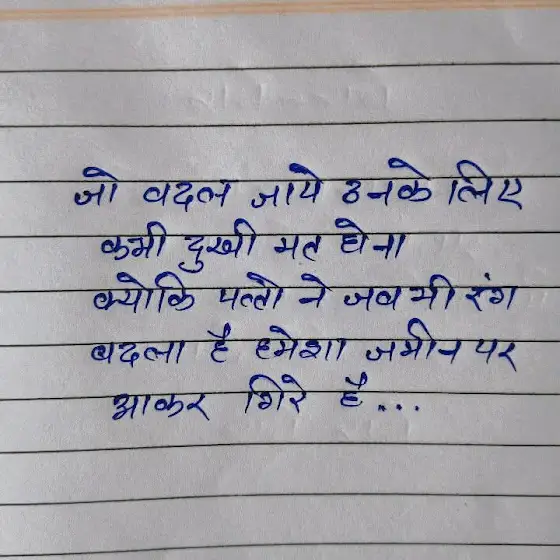 जो बदल जाये उनके लिए
कभी दुखी मत होना
क्योकि पत्तो ने जब भी रंग
बदला है हमेशा जमीन पर
आकर गिरे है...